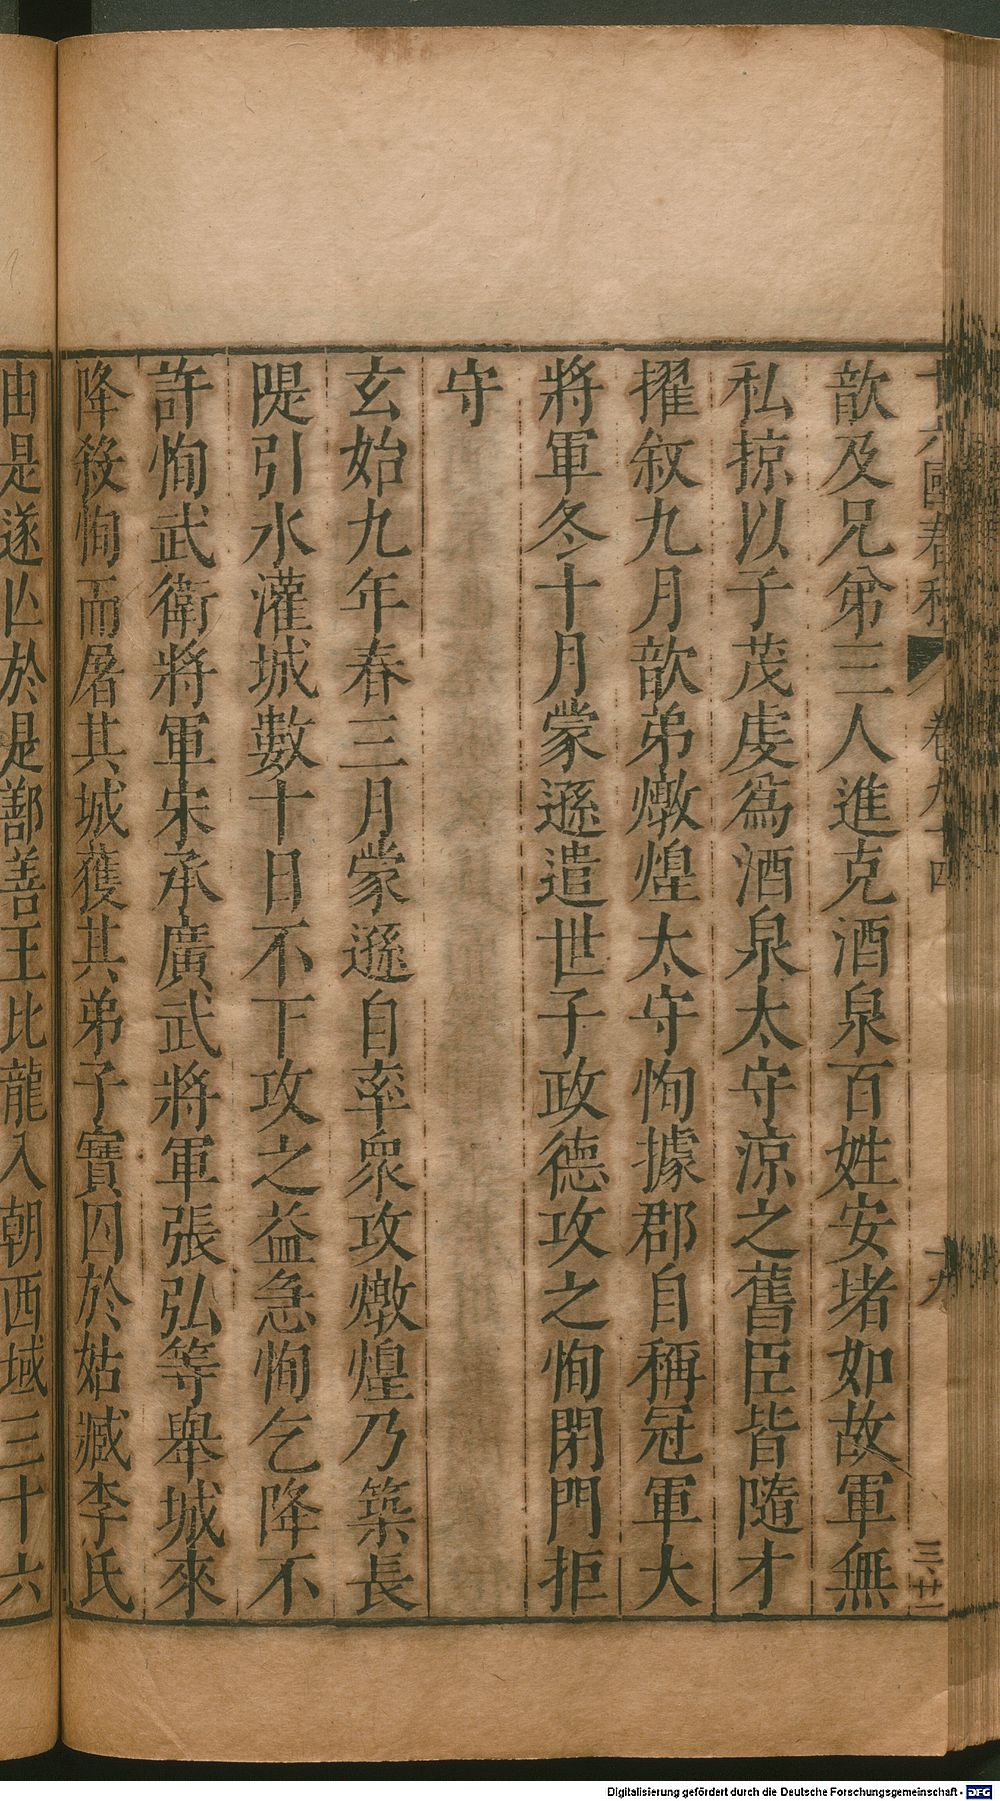 十六國春秋 卷九十四 十九 三廿一
歆及兄弟三人進克酒泉百姓安堵如故軍無
私掠以子茂虔爲酒泉太守涼之舊臣皆隨才
擢敘九月歆弟燉煌太守恂據郡自稱冠軍大
將軍冬十月蒙遜遣世子政德攻之恂閉門拒
守
玄始九年春三月蒙遜自率衆攻燉煌乃築長
隄引水灌城數十日不下攻之益急恂乞降不
許恂武衛將軍宋承廣武將軍張弘等舉城來
降殺恂而屠其城獲其弟子寶囚於姑臧李氏
由是遂亾於是鄯善王比龍入朝西域三十六
Digitalisierung gefördert durch die Deutsche Forschungsgemeinschaft - DFG